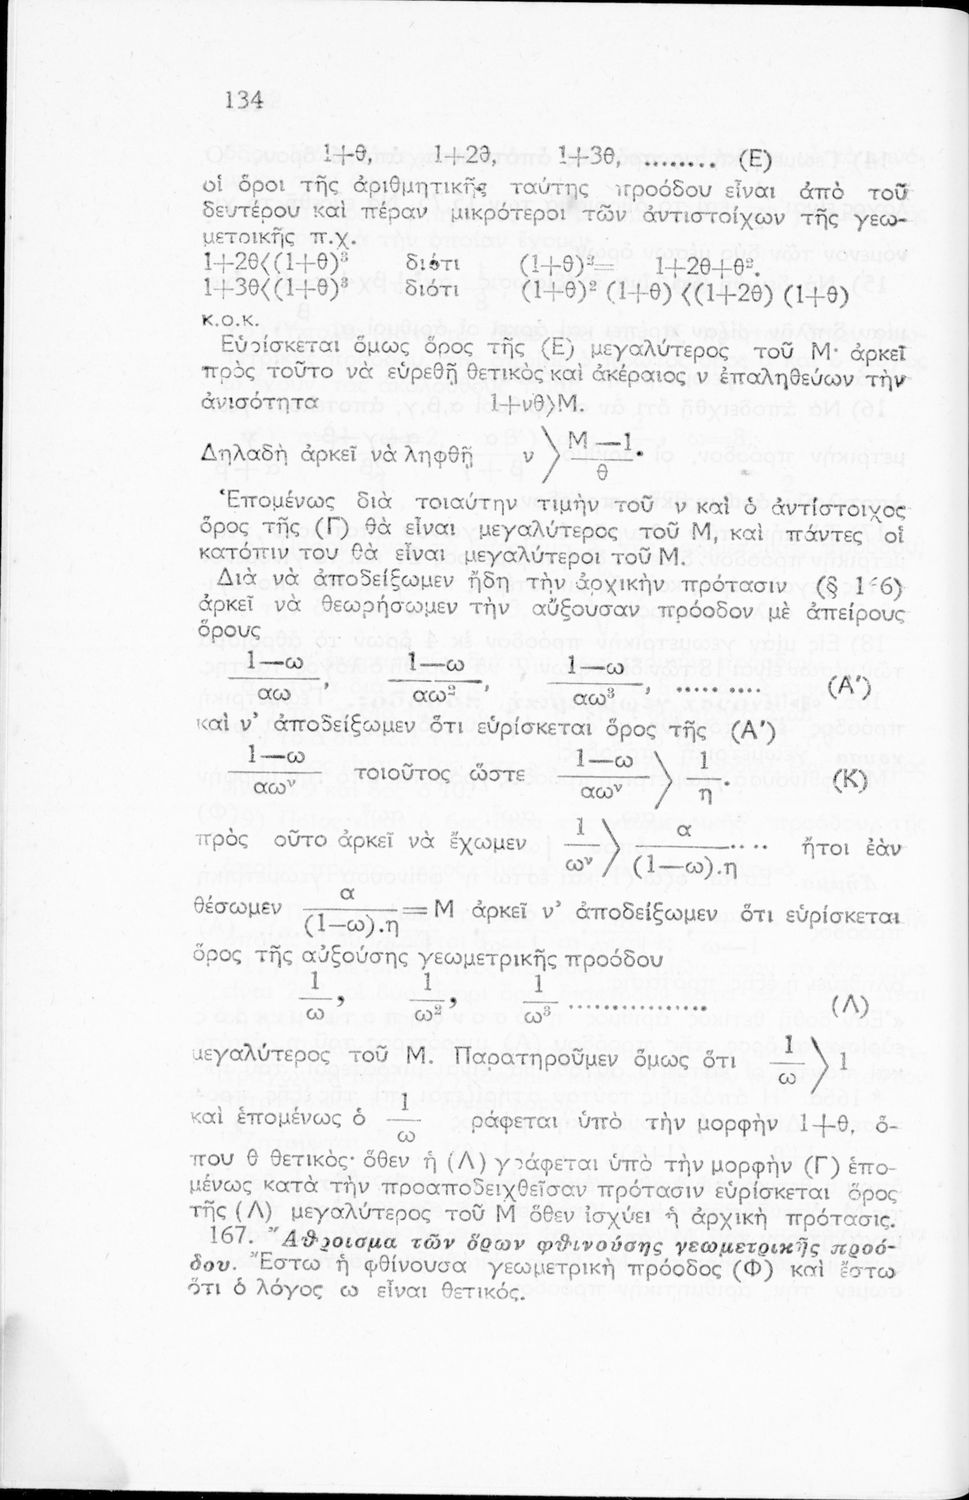 134
1+θ, 1+2θ, 1+3θ, ......... (Ε)
οἱ ὅροι τῆς ἀριθμητικῆς ταύτης προόδου εἶναι ἀπὸ τοῦ
δευτέρου καὶ πέραν μικρότεροι τῶν ἀντιστοίχων τῆς γεω-
μετρικῆς π.χ.
1+2θ<(1+θ)² διότι (1+θ)²= 1+2θ+θ².
1+3θ<(1+θ)³ διότι (1+θ)² (1+θ) <(1+2θ) (1+θ)
κ.ο.κ.
Εὑρίσκεται ὅμως ὅρος τῆς (Ε) μεγαλύτερος τοῦ Μ· ἀρκεῖ
πρὸς τοῦτο νὰ εὑρεθῇ θετικὸς καὶ ἀκέραιος ν ἐπαληθεύων τὴν
ἀνισότητα 1+νθ>Μ.
Δηλαδὴ ἀρκεῖ νὰ ληφθῇ ν > (Μ—1)/θ.
Ἑπομένως διὰ τοιαύτην τιμὴν τοῦ ν καὶ ὁ ἀντίστοιχος
ὅρος τῆς (Γ) θὰ εἶναι μεγαλύτερος τοῦ Μ, καὶ πάντες οἱ
κατόπιν του θὰ εἶναι μεγαλύτεροι τοῦ Μ.
Διὰ νὰ ἀποδείξωμεν ἤδη τὴν ἀρχικὴν πρότασιν (§ 166)
ἀρκεῖ νὰ θεωρήσωμεν τὴν αὔξουσαν πρόοδον μὲ ἀπείρους
ὅρους
(1—ω)/(αω), (1—ω)/(αω²), (1—ω)/(αω³), ......... (Α')
καὶ ν' ἀποδείξωμεν ὅτι εὑρίσκεται ὅρος τῆς (Α')
(1—ω)/(αω^ν) τοιοῦτος ὥστε (1—ω)/(αω^ν) > 1/η. (Κ)
πρὸς οὕτο ἀρκεῖ νὰ ἔχωμεν 1/ω^ν > α/((1—ω).η).... ἤτοι ἐὰν
θέσωμεν α/((1—ω).η) = Μ ἀρκεῖ ν' ἀποδείξωμεν ὅτι εὑρίσκεται
ὅρος τῆς αὐξούσης γεωμετρικῆς προόδου
1/ω, 1/ω², 1/ω³ .................. (Λ)
μεγαλύτερος τοῦ Μ. Παρατηροῦμεν ὅμως ὅτι 1/ω > 1
καὶ ἑπομένως ὁ 1/ω ράφεται ὑπὸ τὴν μορφὴν 1+θ, ὅ-
που θ θετικὸς· ὅθεν ἡ (Λ) γράφεται ὑπὸ τὴν μορφὴν (Γ) ἑπο-
μένως κατὰ τὴν προαποδειχθεῖσαν πρότασιν εὑρίσκεται ὅρος
τῆς (Λ) μεγαλύτερος τοῦ Μ ὅθεν ἰσχύει ἡ ἀρχικὴ πρότασις.
167. Ἄθροισμα τῶν ὅρων φθινούσης γεωμετρικῆς προό-
δου. Ἔστω ἡ φθίνουσα γεωμετρικὴ πρόοδος (Φ) καὶ ἔστω
ὅτι ὁ λόγος ω εἶναι θετικός.